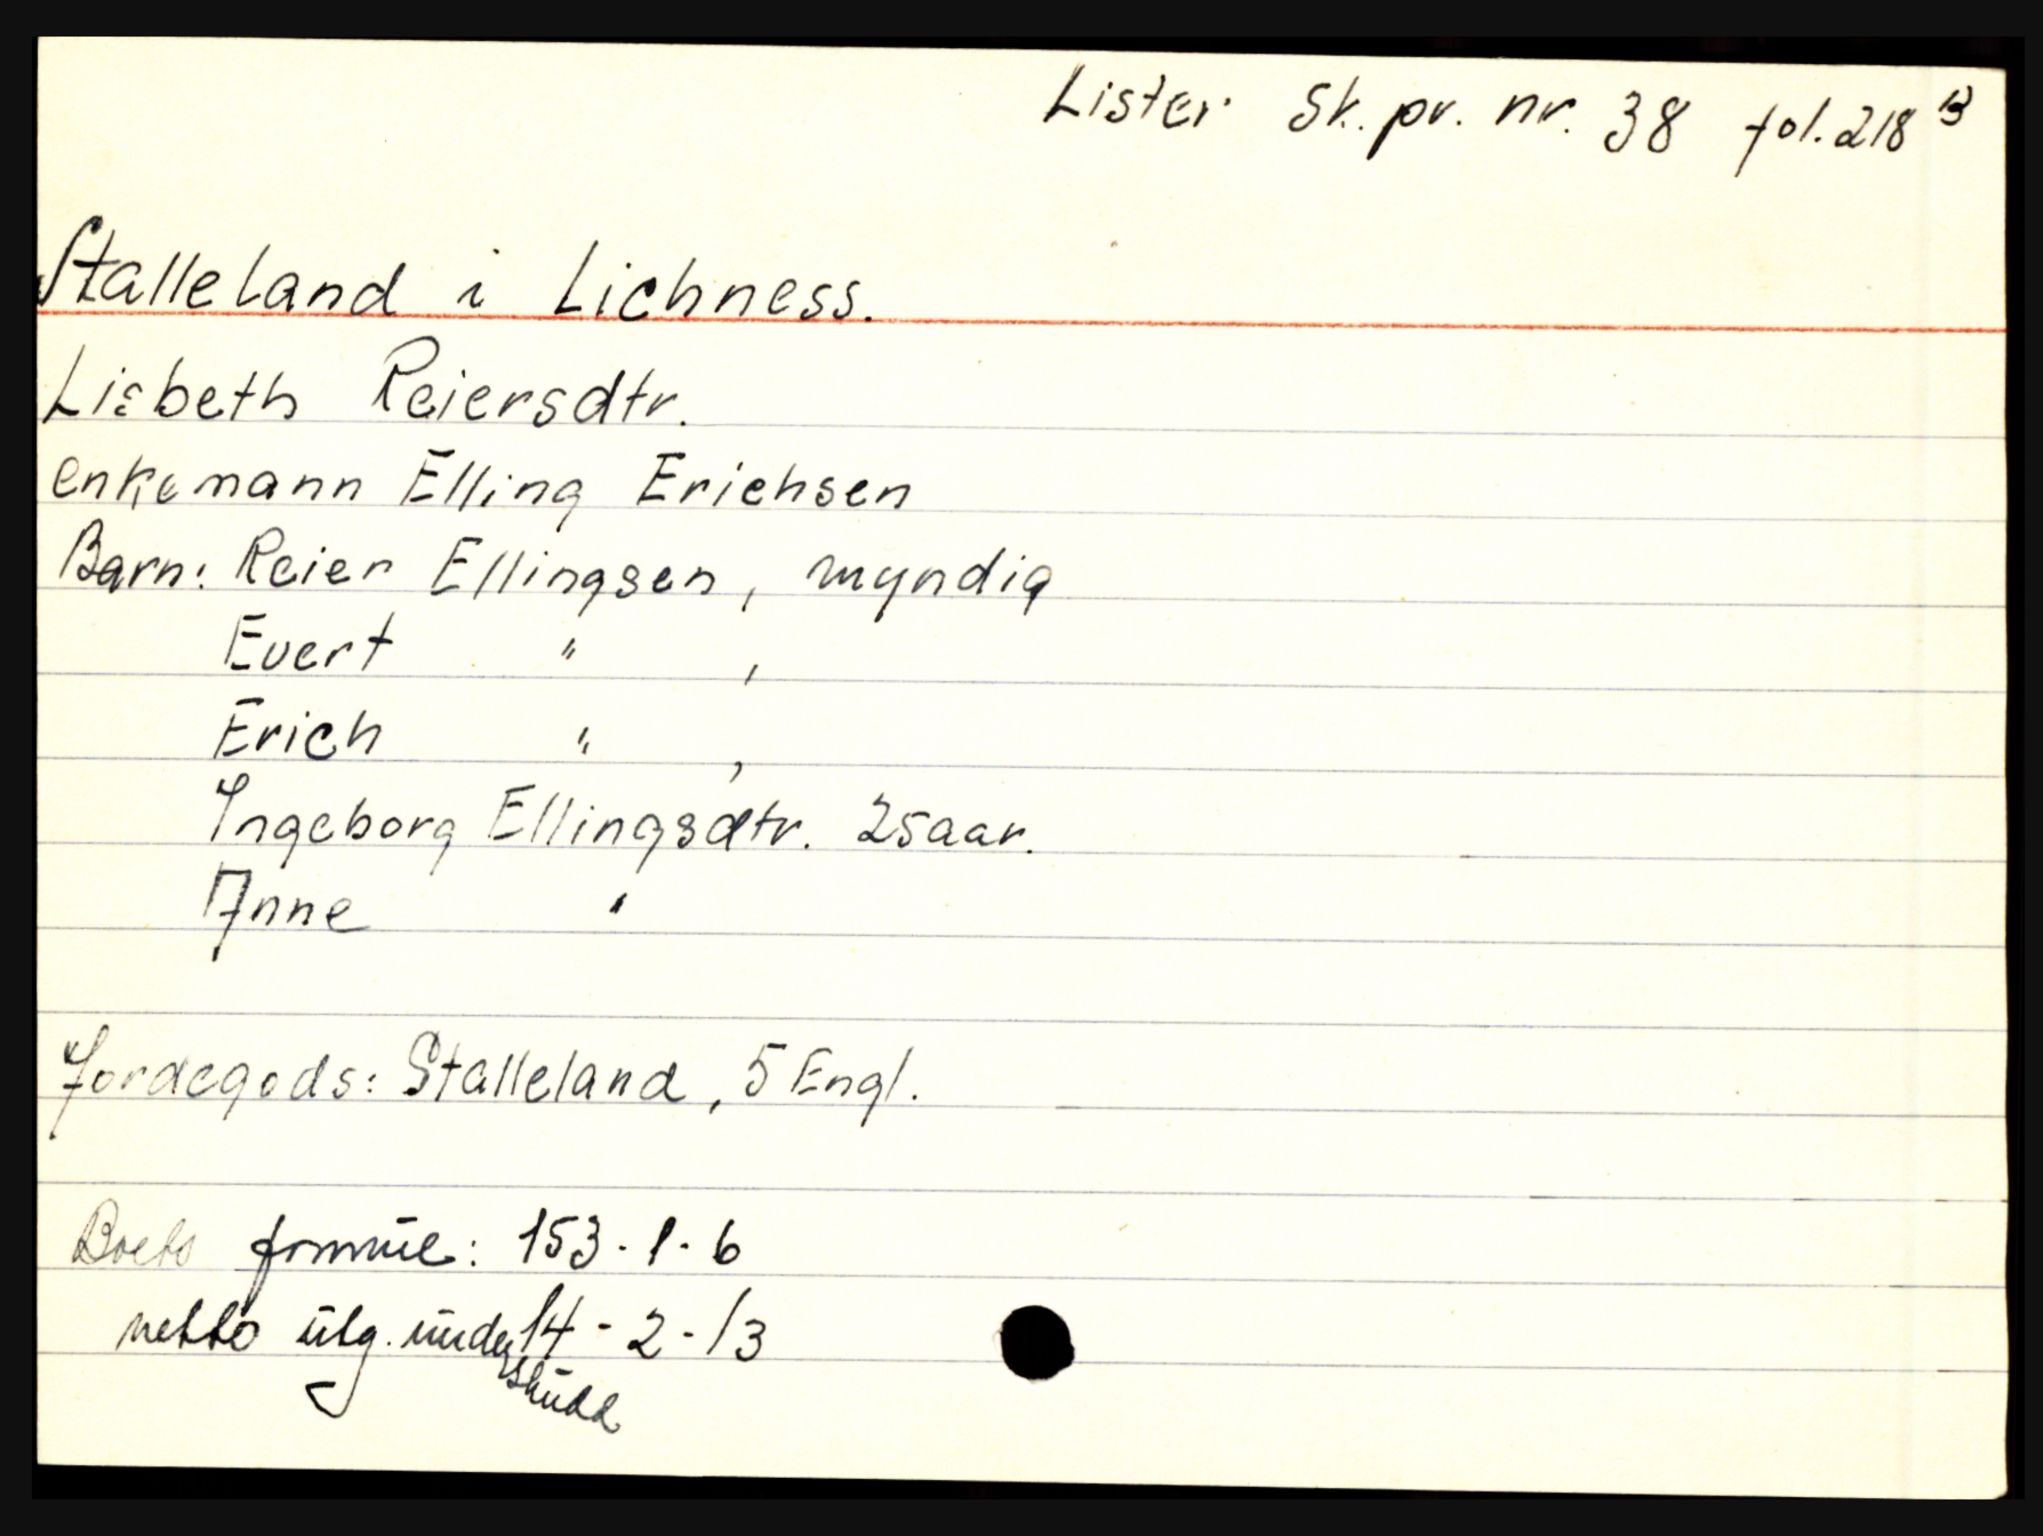 Lister Sk. pr. nr. 38 fol. 218 B
Stalleland i Lichness.
Lisbeth Reiersdtr.
enkemann Elling Erichsen
Barn: Reier Ellingsen, myndig
Evert " ,
Erich " ,
Ingeborg Ellingsdtr. 25 aar.
Anne "
Jordegods: Stalleland, 5 Engl.
Boets formue: 153 - 1 - 6
netto utg. underskudd 14 - 2 - 13